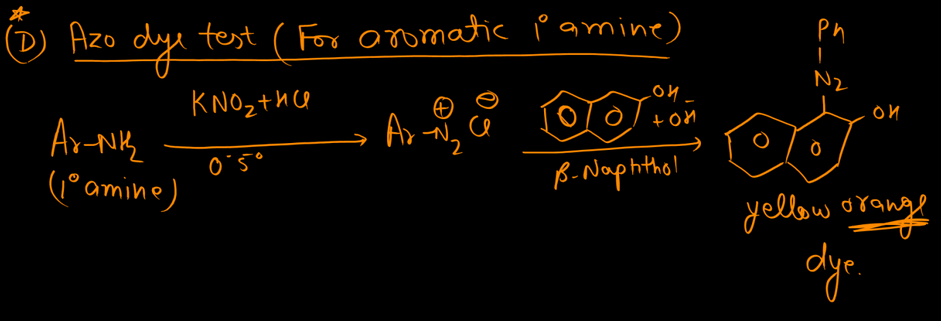 (D) Azo dye test (For aromatic 1° amine)
Ar-NH₂
(1° amine)
KNO₂+HCl
0-5°
Ar-N₂ Cl
⊕ ⊖
OH
+ OH⁻
β-Naphthol
Ph
N₂
OH
yellow orange
dye.